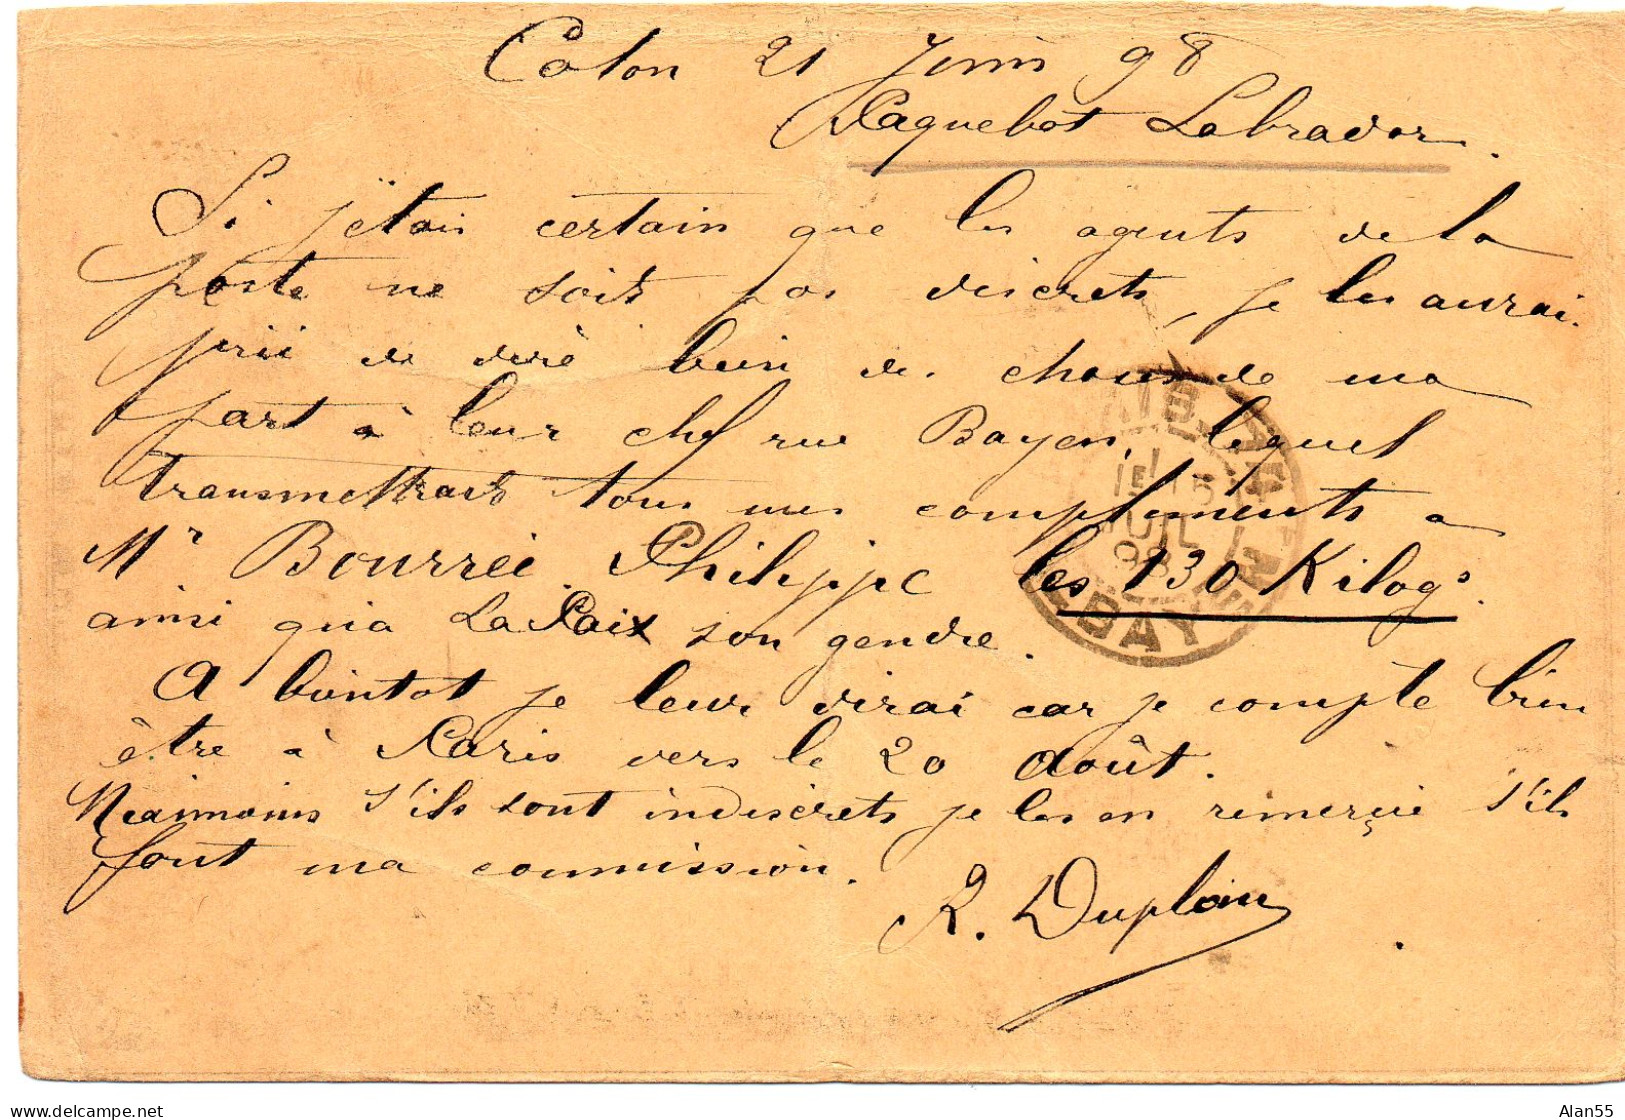 Colon 21 Juin 98
Paquebot Labrador.
Si j'étais certain que les agents de la
poste ne soit pas discrets, je les aurai
prié de dire bien des choses de ma
part à leur chef rue Bayen, lequel
transmettrait tous mes compliments a
Mr Bourrée Philippe les 130 Kilogs.
ainsi qu'a La Paix son gendre.
A bientot je leur dirai car je compte bien
être à Paris vers le 20 Août.
Néaimoins s'ils sont indiscrets je les en remercie s'ils
font ma commission.
R. Duplain
15
JUIL
98
DAY
Alan55